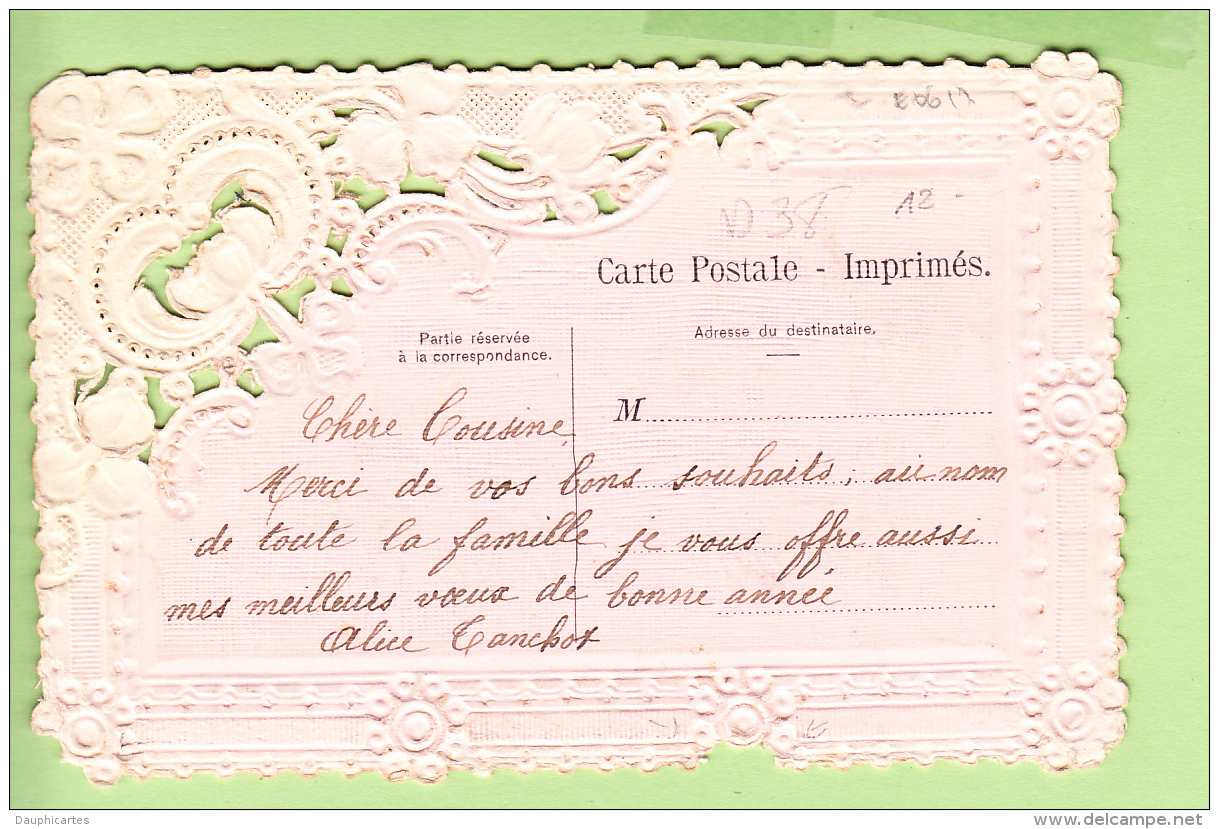 D38
12 -
Carte Postale - Imprimés.
Partie réservée
à la correspondance.
Adresse du destinataire.
M
Chère Cousine
Merci de vos bons souhaits, au nom
de toute la famille je vous offre aussi
mes meilleurs vœux de bonne année
Alice Tanchot
Dauphicartes
delcampe.net